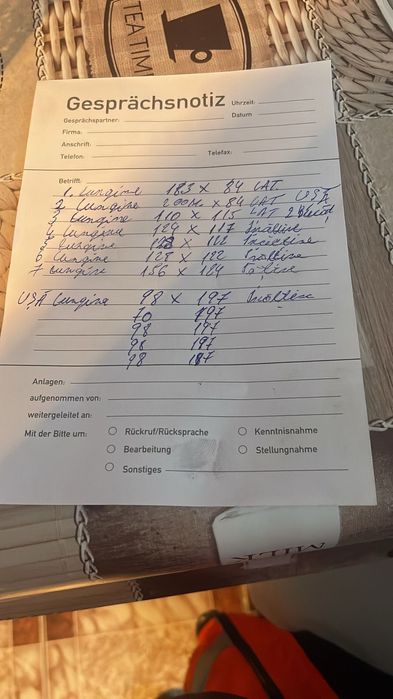 TEA TIM
Gesprächsnotiz
Uhrzeit:
Gesprächspartner:
Datum
Firma:
Anschrift:
Telefon:
Telefax:
Betrifft:
1 Lungime 183 x 84 LAT
2 Lungime 200 x 84 LAT USA
3 Lungime 110 x 115 LAT 2
4 Lungime 129 x 117 Inaltime
5 Lungime x 122
6 Lungime 122 x 122 Inaltime
7 Lungime 156 x 124
USA Lungime 98 x 197 Inaltime
70 197
98 197
98 197
98 197
Anlagen:
aufgenommen von:
weitergeleitet an:
Mit der Bitte um:
Rückruf/Rücksprache
Kenntnisnahme
Bearbeitung
Stellungnahme
Sonstiges
MILK